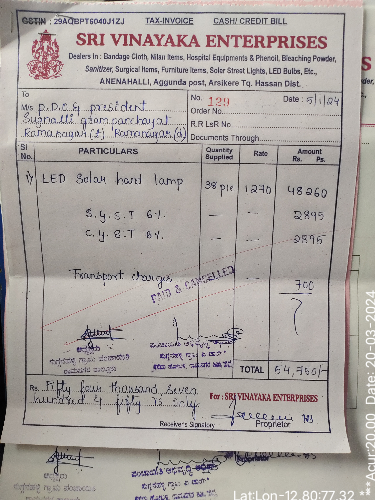 GSTIN : 29AQBPT6040J1ZJ TAX-INVOICE CASH/ CREDIT BILL
SRI VINAYAKA ENTERPRISES
Dealers in : Bandage Cloth, Nilau Items, Hospital Equipments & Phenoil, Bleaching Powder,
Sanitizer, Surgical Items, Furniture Items, Solar Street Lights, LED Bulbs, Etc.,
ANENAHALLI, Aggunda post, Arsikere Tq. Hassan Dist.
To No. 129 Date : 5/1/24
M/s P.D.O & president Order No.
Sugnalli grampanchayat R.R LsR No.
Ramanagar (T) Ramanagar (D) Documents Through
Sl No. PARTICULARS Quantity Supplied Rate Amount Rs. Ps.
1) LED Solar hart lamp 38 pic 1270 48260
S.G.S.T 6% - - 2895
C.G.S.T 6% - - 2895
Transport charges 700
PAID & CANCELLED
ಅಧ್ಯಕ್ಷರು
TOTAL 54,750/-
Rs. Fifty four thousand seven
hundred & fifty Rs only
For : SRI VINAYAKA ENTERPRISES
Receiver's Signatory Proprietor
Lat:Lon-12.80:77.32
***Acur:20.00 Date: 20-03-2024